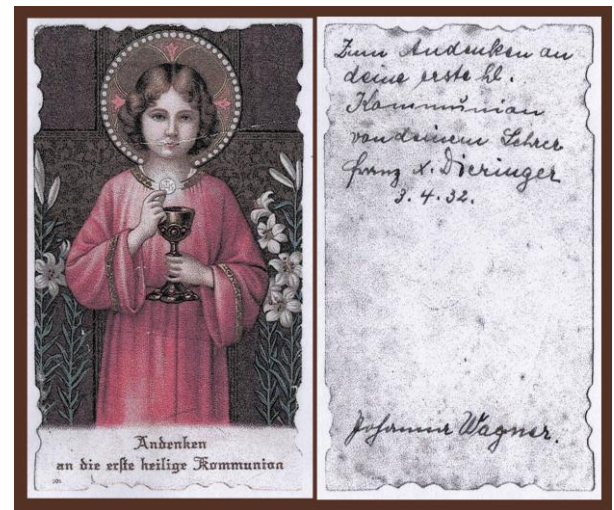 Andenken
an die erste heilige Kommunion
Zum Andenken an
deine erste hl.
Kommunion
von deinem Lehrer
Franz X. Dieringer
3. 4. 32.
Wagner.